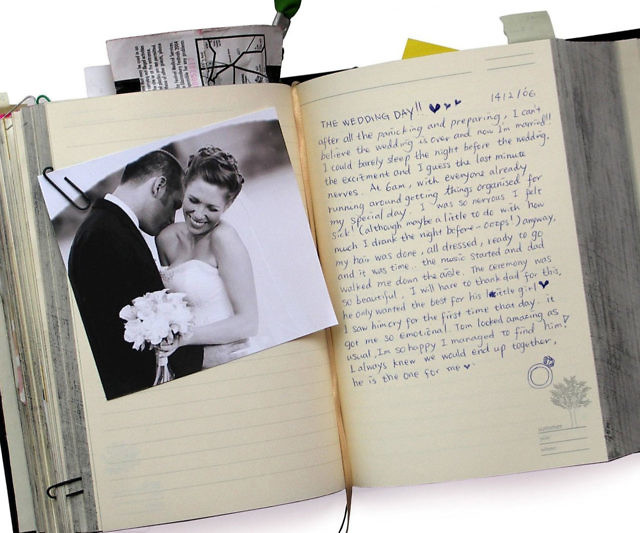 14/2/06
THE WEDDING DAY!!
after all the panicking and preparing, I can't
believe the wedding is over and now I'm married!!
I could barely sleep the night before the wedding.
the excitment and I guess the last minute
nerves. At 6am, with everyone already
running around getting things organised for
my special day. I was so nervous I felt
sick! (although maybe a little to do with how
much I drank the night before - oops!) anyway,
my hair was done, all dressed, ready to go
and it was time.. the music started and dad
walked me down the aisle. The ceremony was
so beautiful, I will have to thank dad for this,
he only wanted the best for his little girl
I saw him cry for the first time that day.. it
got me so emotional. Tom looked amazing as
usual, I'm so happy I managed to find him!
I always knew we would end up together,
he is the one for me